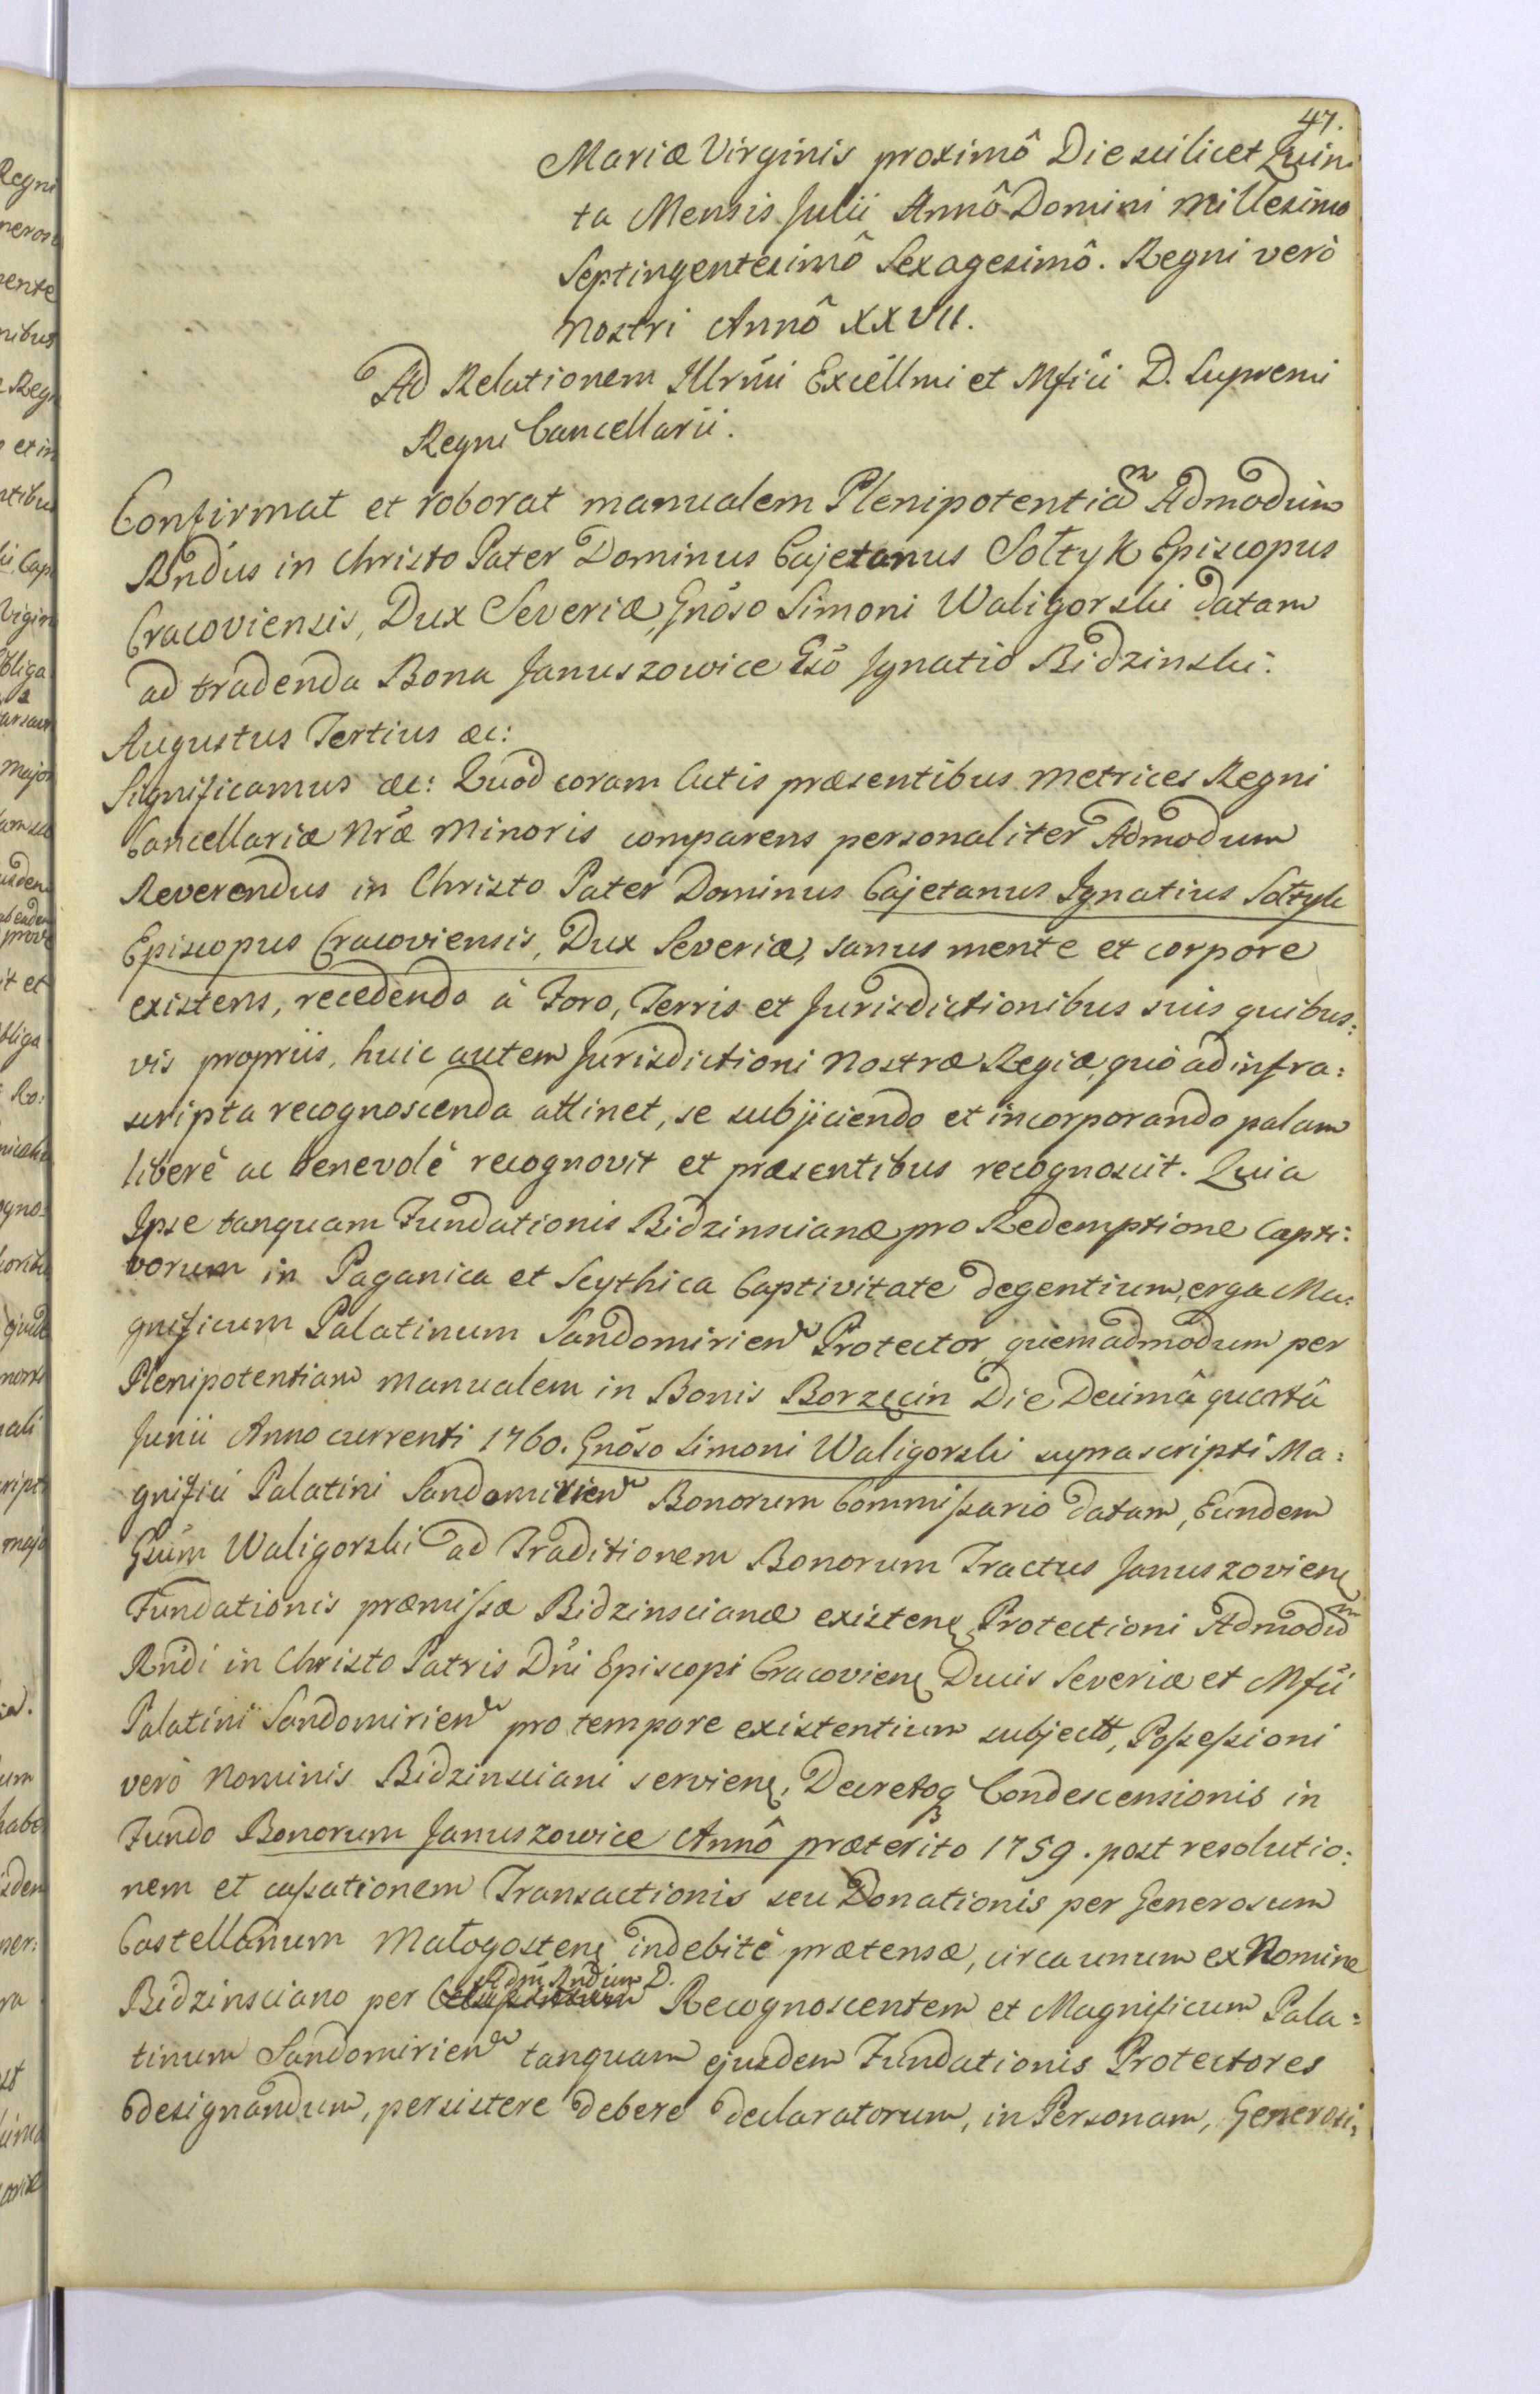 47.
Mariæ Virginis proximô Die scilicet Quin:
ta Mensis Julii Annô Domini Millesimo
Septingentesimô Sexagesimô. Regni verò
Nostri Annô XXVII.
Ad Relationem Illrmi Excellmi et Mfici D. Supremi
Regni Cancellarii.
Confirmat et roborat manualem Plenipotentiam Admodum
Rndus in Christo Pater Dominus Cajetanus Sołtyk Episcopus
Cracoviensis, Dux Severiæ, Gnoso Simoni Waligorski datam
ad tradenda Bona Januszowice Gso Ignatio Bidzinski.
Augustus Tertius &c:
Significamus &c: Quod coram Actis præsentibus Metrices Regni
Cancellariæ Nræ Minoris comparens personaliter Admodum
Reverendus in Christo Pater Dominus Cajetanus Ignatius Sołtyk
Episcopus Cracoviensis, Dux Severiæ, sanus mente et corpore
existens, recedendo à Foro, Terris et Jurisdictionibus suis quibus:
vis propriis, huic autem Jurisdictioni Nostræ Regiæ, quò ad infra:
scripta recognoscenda attinet, se subjiciendo et incorporando palam
liberè ac benevolè recognovit et præsentibus recognoscit. Quia
Ipse tanquam Fundationis Bidzinscianæ pro Redemptione Capti:
vorum in Paganica et Scythica Captivitate degentium, erga Ma:
gnificum Palatinum Sandomirien Protector, quemadmodum per
Plenipotentiam manualem in Bonis Borzęcin Die Decimâ quartâ
Junii Anno currenti 1760. Gnoso Simoni Waligorski suprascripti Ma:
gnifici Palatini Sandomirien Bonorum Commissario datam, Eundem
Gsum Waligorski ad Traditionem Bonorum Tractus Januszovien
Fundationis præmissæ Bidzinscianæ existen Protectioni Admodum
Rndi in Christo Patris Dni Episcopi Cracovien Ducis Severiæ et Mfci
Palatini Sandomirien pro tempore existentium subject, Possessioni
verò Nominis Bidzinsciani servien, Decretoq Condescensionis in
Fundo Bonorum Januszowice Annô præterito 1759. post resolutio:
nem et cassationem Transactionis seu Donationis per Generosum
Castellanum Małogosten indebitè prætensæ, circa unum ex Nomine
Bidzinsciano per Adm Rndum D. Recognoscentem et Magnificum Pala:
tinum Sandomirien tanquam ejusdem Fundationis Protectores
designandum, persistere debere declaratorum, in Personam, Generosi: